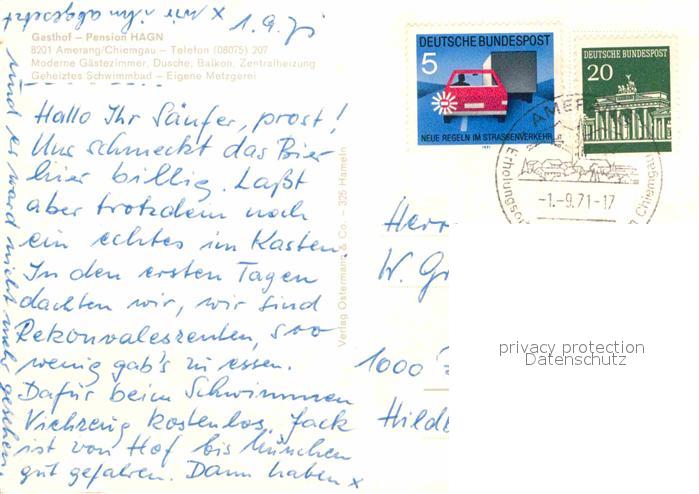 1.9.71
Gasthof – Pension HAGN
8201 Amerang/Chiemgau – Telefon (08075) 207
Moderne Gästezimmer, Dusche, Balkon, Zentralheizung
Geheiztes Schwimmbad – Eigene Metzgerei
Hallo Ihr Säufer, prost!
Uns schmeckt das Bier
hier billig. Laßt
aber trotzdem noch
ein echtes im Kasten.
In den ersten Tagen
dachten wir, wir sind
Rekonvaleszenten, soo
wenig gab's zu essen.
Dafür beim Schwimmen
Viehzeug kostenlos. Jack
ist von Hof bis München
gut gefahren. Dann haben x
x wir ihn abgesetzt
und es ward nicht mehr gesehen.
Verlag Ostermann & Co. – 325 Hameln
DEUTSCHE BUNDESPOST
5
NEUE REGELN IM STRASSENVERKEHR
1971
DEUTSCHE BUNDESPOST
20
AMER
Erholungso
Chiemgau
-1.-9.71-17
Herr
W. Gr
1000
Hilde
privacy protection
Datenschutz